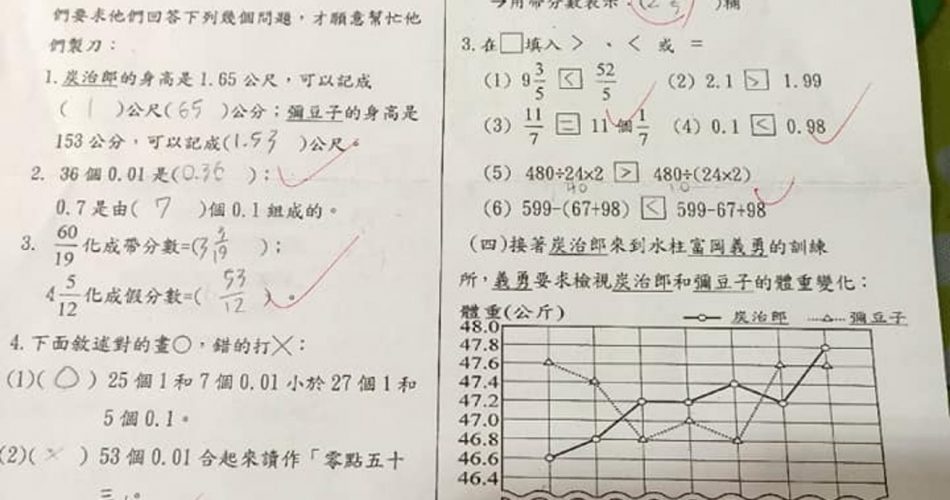 們要求他們回答下列幾個問題，才願意幫忙他
們製刀：
1.炭治郎的身高是1.65公尺，可以記成
( 1 )公尺(65 )公分；彌豆子的身高是
153公分，可以記成(1.53 )公尺。
2. 36個0.01是(0.36 )；
0.7是由( 7 )個0.1組成的。
3. 60/19化成帶分數=(3 3/19 )；
4 5/12化成假分數=( 53/12 )。
4.下面敘述對的畫○，錯的打╳：
(1)( ○ ) 25個1和7個0.01小於27個1和
5個0.1。
(2)( × ) 53個0.01合起來讀作「零點五十
三」。
用帶分數表示
)桶
3.在□填入＞、＜ 或 ＝
(1) 9 3/5 < 52/5 (2) 2.1 > 1.99
(3) 11/7 = 11個1/7 (4) 0.1 < 0.98
(5) 480÷24×2 > 480÷(24×2)
40 10
(6) 599-(67+98) < 599-67+98
(四)接著炭治郎來到水柱富岡義勇的訓練
所，義勇要求檢視炭治郎和彌豆子的體重變化：
體重(公斤)
炭治郎 彌豆子
48.0
47.8
47.6
47.4
47.2
47.0
46.8
46.6
46.4